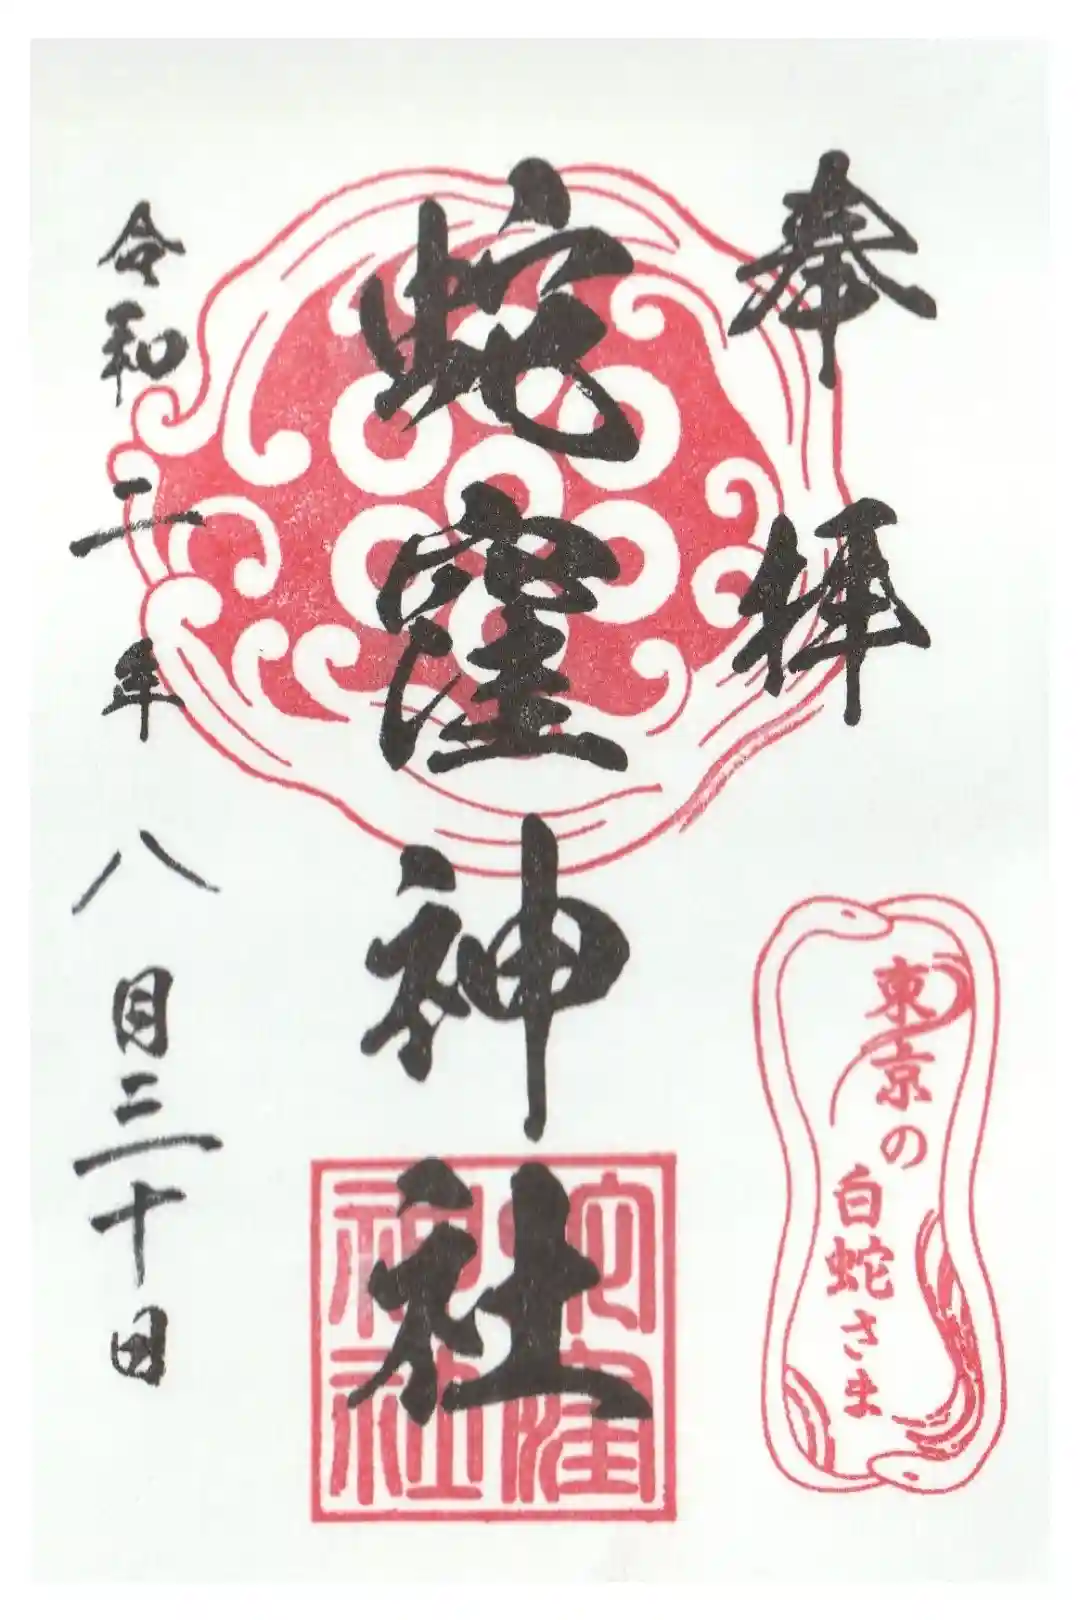 奉拝
蛇窪神社
令和二年八月三十日
蛇窪
神社
東京の
白蛇さま